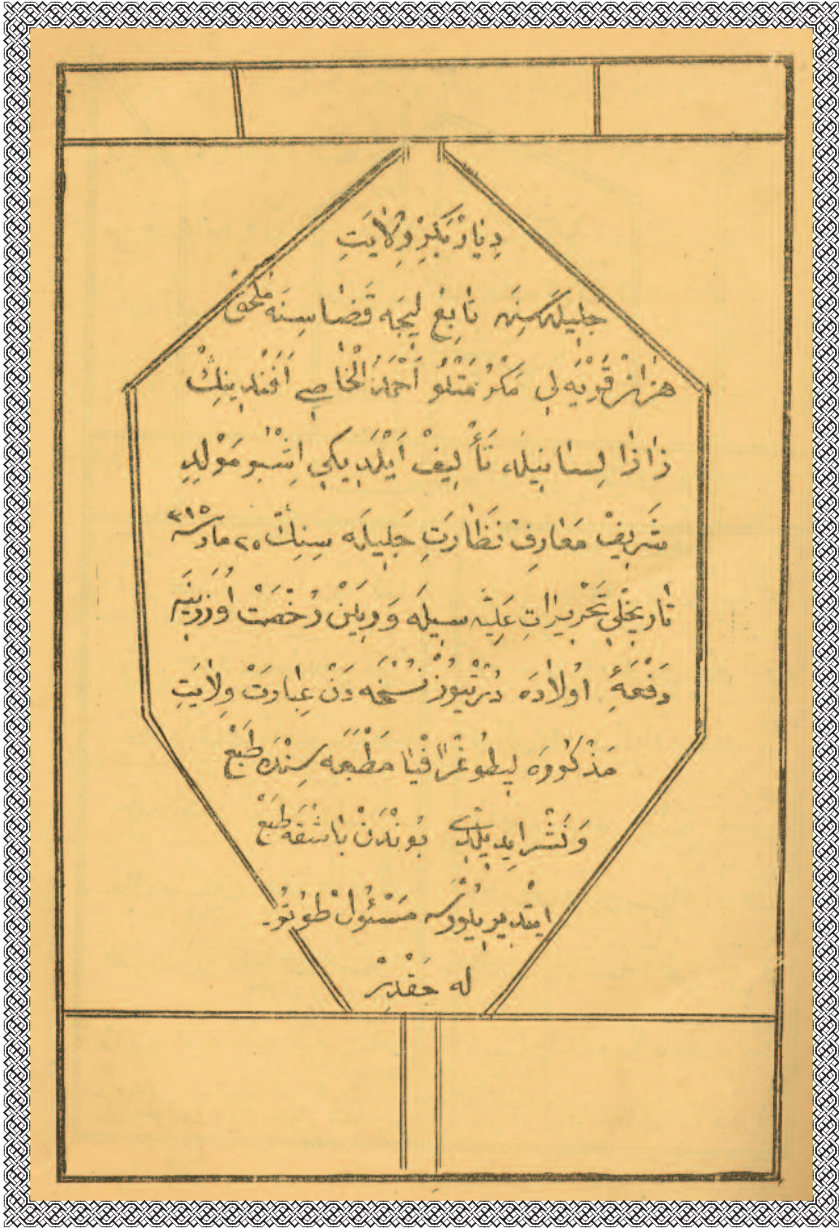 دِيَارْبَكِرْ وِلَايَتِ
جَلِيلَه سِنَه تَابِعْ لِيجَه قَضَا سِنَه مُلْحَقْ
هَزَانْ قَرْيَه لِي مَكْرُمَتْلُو اَحْمَدُ الْخَاصِي اَفَنْدِينِكْ
زَازَا لِسَانِيلَه تَأْلِيفْ اَيْلَدِيكِي اِشْبُو مَوْلِدِ
شَرِيفْ مَعَارِفْ نَظَارَتِ جَلِيلَه سِنِكْ ٢٠ مارت ٣١٥
تَارِيخْلِي تَحْرِيرَاتِ عَلِيَّه سِيلَه وَرِيلَنْ رُخْصَتْ اُوزَرِينَه
دَفْعَهٔ اُولَادَه دُرْتْيُوزْ نُسْخَه دَنْ عِبَارَتْ وِلَايَتِ
مَذْكُورَه لِيطُوغْرَافْيَا مَطْبَعَه سِنْدَه طَبْعْ
وَنَشْر اِيدِيلْدِي بُونْدَنْ بَاشْقَه طَبْعْ
ايتْدِيرِيلُورْسَه مَسْئُولْ طُوتُو
لَه جَقْدِرْ